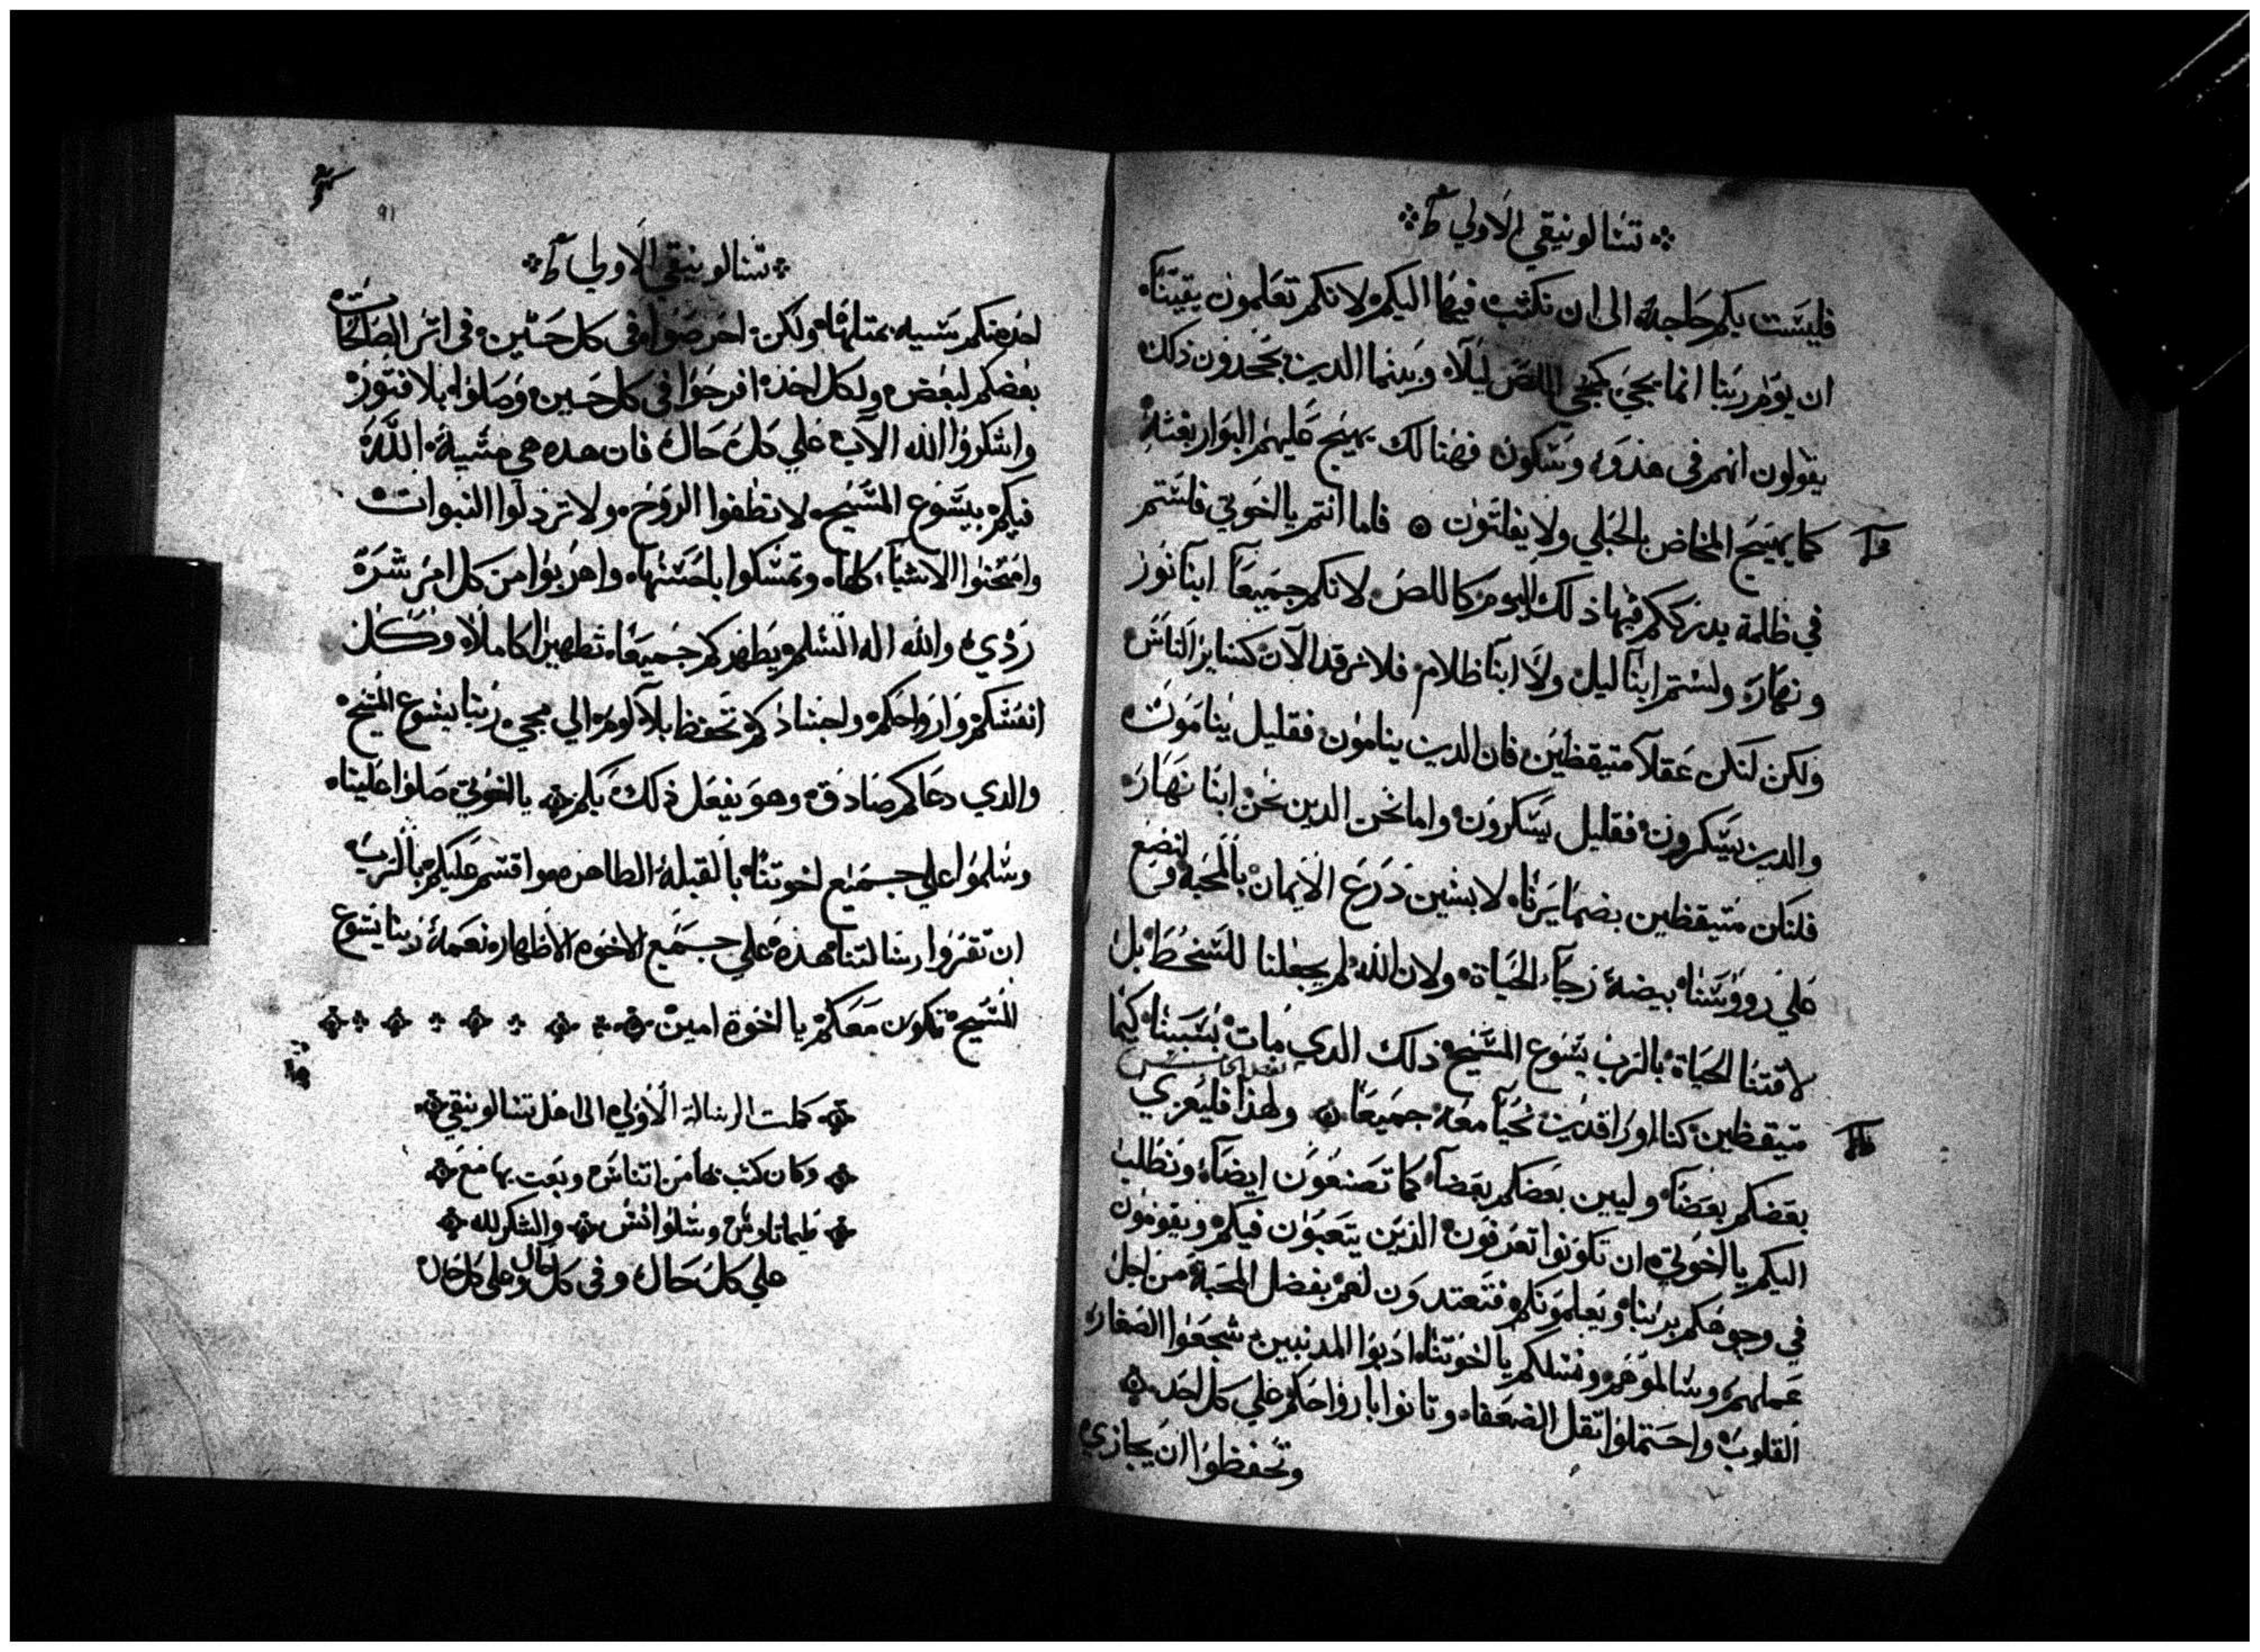 تسالونيقي الاولي
فليست بكم حاجة الى ان نكتب فيها اليكم لانكم تعلمون يقيناً
ان يوم ربنا انما يجي كمجي اللص ليلاً وبينما الدين يجحدون ذلك
يقولون انهم في هدو وسكون فهنالك يهيج عليهم البوار بغتة
كما يهيج المخاض بالحبلي ولا يفلتون فاما انتم يا اخوتي فلستم
في ظلمة يدرككم فيها ذلك اليوم كاللص لانكم جميعاً ابنا نور
ونهار ولستم ابنا ليل ولا ابنا ظلام فلا نرقد الان كساير الناس
ولكن لنكن عقلا متيقظين فان الدين ينامون فقليل ينامون
والدين يسكرون فقليل يسكرون واما نحن الدين نحن ابنا نهار
فلنكن متيقظين بضمايرنا لابسين درع الايمان بالمحبة ولنضع
علي رووسنا بيضة رجا الحياة ولان الله لم يجعلنا للسخط بل
لاقتنا الحياة بالرب يسوع المسيح ذلك الدي مات بسببنا كيما
متيقظين كنا او راقدين نحيا معه جميعاً ولهذا فليعزي
بعضكم بعضاً وليبن بعضكم بعضاً كما تصنعون ايضاً ونطلب
اليكم يا اخوتي ان تكونوا تعرفون الذين يتعبون فيكم ويقومون
في وجوهكم بربنا ويعلمونكم فتعتدون لهم بفضل المحبة من اجل
عملهم وسالموهم ونسلكم يا اخوتنا ادبوا المدنبين شجعوا الصغار
القلوب واحتملوا ثقل الضعفا وتانوا بارواحكم علي كل احد
وتحفظوا ان يجازي
91
تسالونيقي الاولي
احد منكم سيه بمتلها ولكن احرصوا في كل حين في اتر الصالحات
بعضكم لبعض ولكل احد افرحوا في كل حين وصلوا بلا فتور
واشكروا الله الاب علي كل حال فان هده هي مشية الله
فيكم بيسوع المسيح لا تطفوا الروح ولا ترذلوا النبوات
وامتحنوا الاشيا كلها وتمسكوا باحسنها واهربوا من كل امر شر
ردي والله اله السلم يطهركم جميعاً تطهيراً كاملاً وكل
انفسكم وارواحكم واجسادكم تحفظ بلا لوم الي مجي ربنا يسوع المسيح
والدي دعاكم صادق وهو يفعل ذلك بكم يا اخوتي صلوا علينا
وسلموا علي جميع اخوتنا بالقبلة الطاهره واقسم عليكم بالرب
ان تقروا رسالتنا هذه علي جميع الاخوه الاطهار نعمة ربنا يسوع
المسيح تكون معكم يا اخوة امين
كملت الرسالة الاولي الى اهل تسالونيقي
وكان كتب بها من اتناس وبعت بها مع
طيماتاوس وسلوانس والشكر لله
علي كل حال وفي كل حال وعلى كل حال